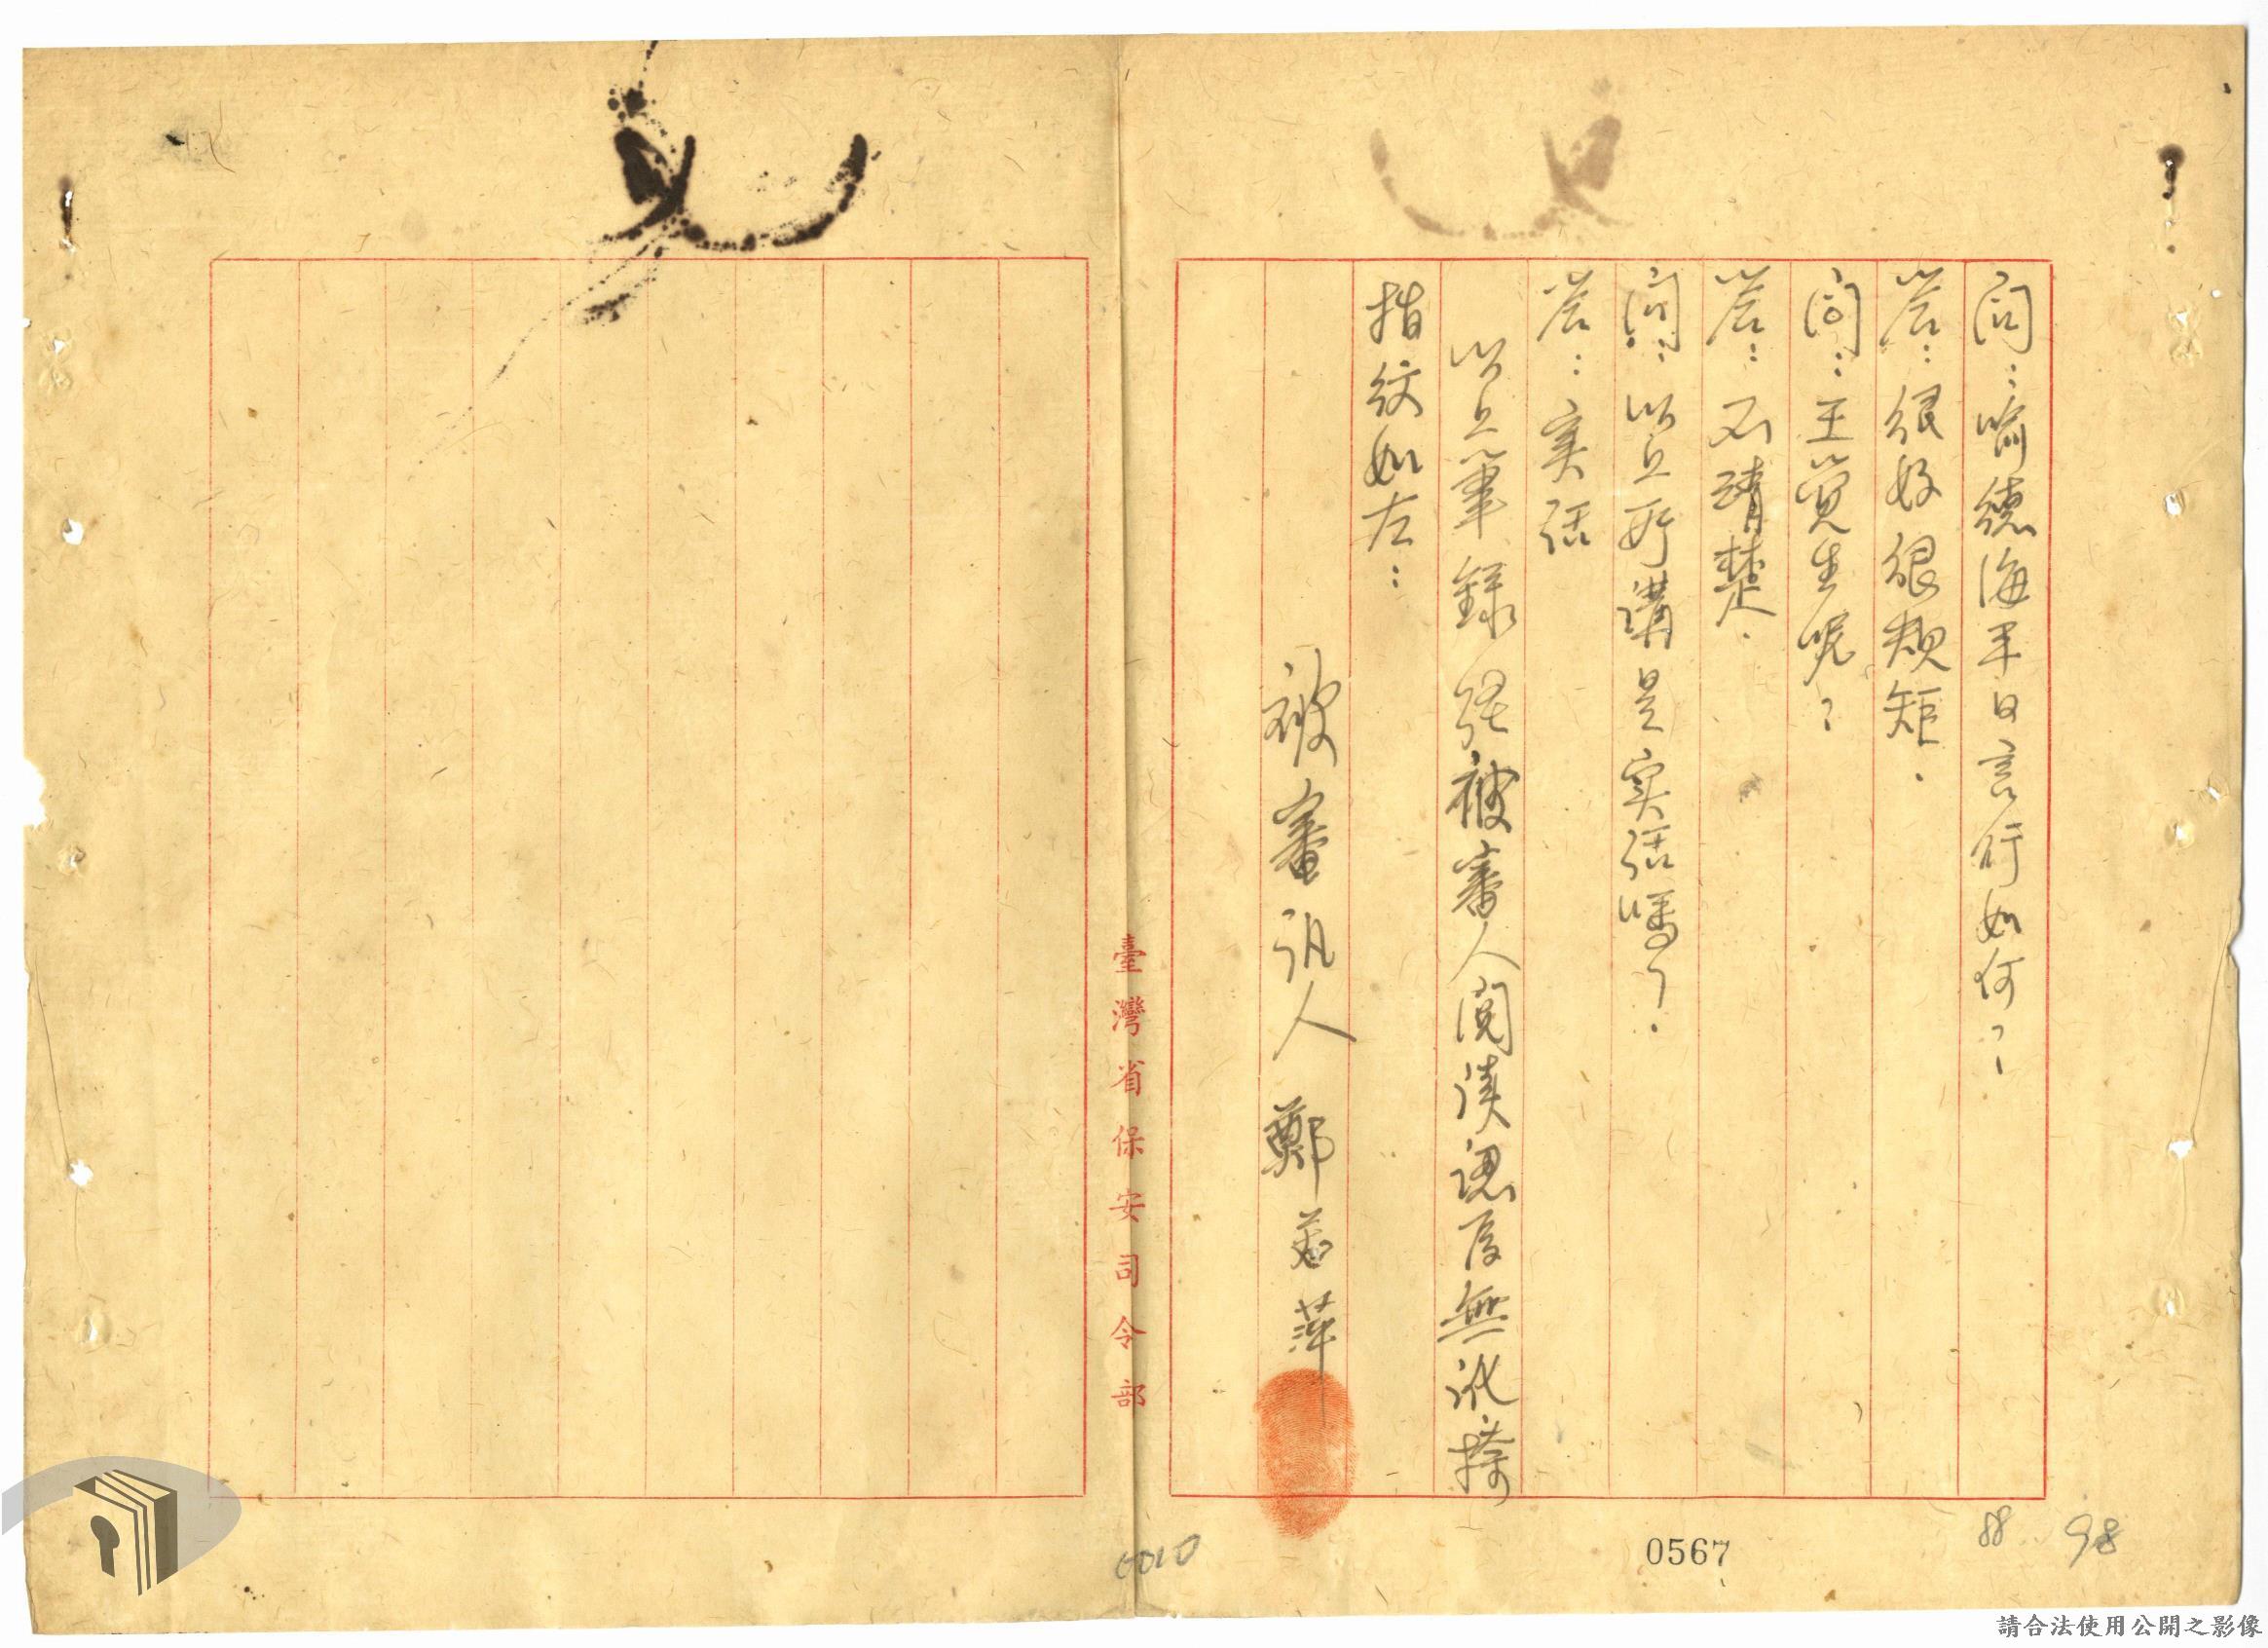 問：喻德海平日言行如何？
答：很好很規矩．
問：王覺生呢？
答：不清楚．
問：以上所講是实話嗎？
答：实話
以上筆錄経被審人閱讀認为無訛捺
指紋如左：
被審訊人 鄭若萍
臺灣省保安司令部
0567
88
98
請合法使用公開之影像